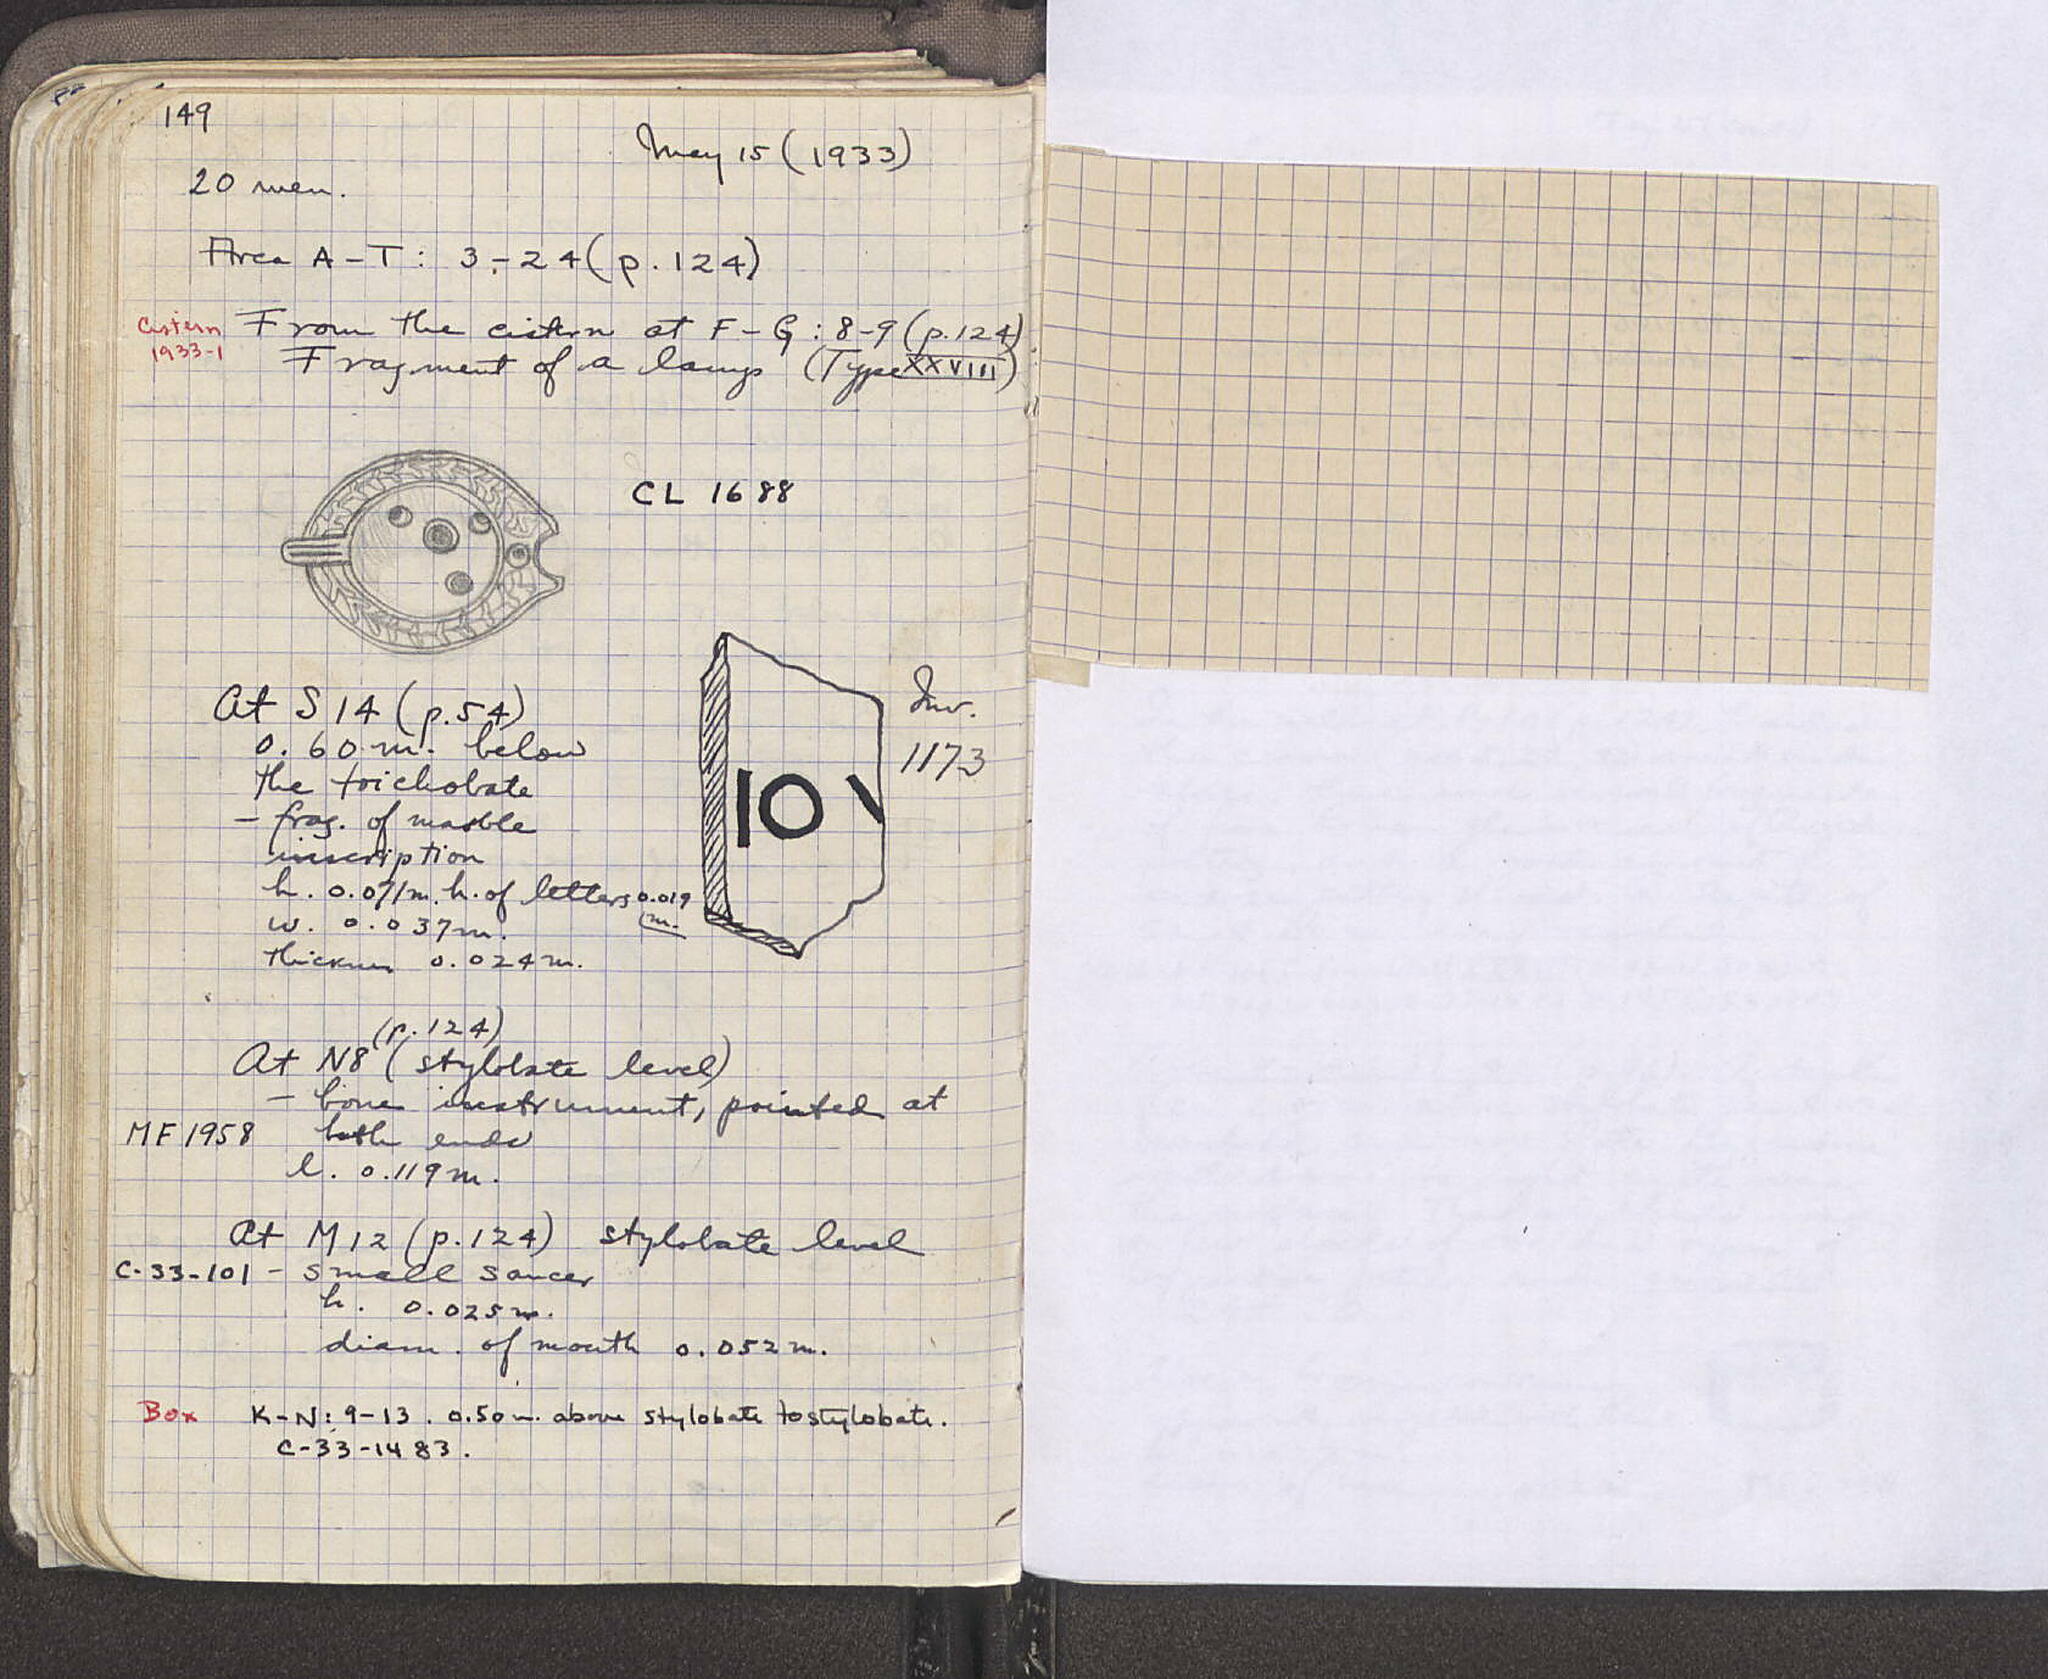 149
May 15 (1933)
20 men.
Area A-T: 3-24 (p.124)
Cistern 1933-1
From the cistern at F-G: 8-9 (p.124)
Fragment of a lamp (Type XXVIII)
CL 1688
At S 14 (p.54)
0.60 m. below
the toichobate
- frag. of marble
inscription
h. 0.071 m. h. of letters 0.019 m.
w. 0.037 m.
thickness 0.024 m.
Inv.
1173
IO
(p.124)
At N8 (stylobate level)
- bone instrument, pointed at
MF 1958 both ends
l. 0.119 m.
At M12 (p.124) stylobate level
C-33-101 - small saucer
h. 0.025 m.
diam. of mouth 0.052 m.
Box K-N: 9-13. 0.50 m. above stylobate to stylobate.
C-33-1483.